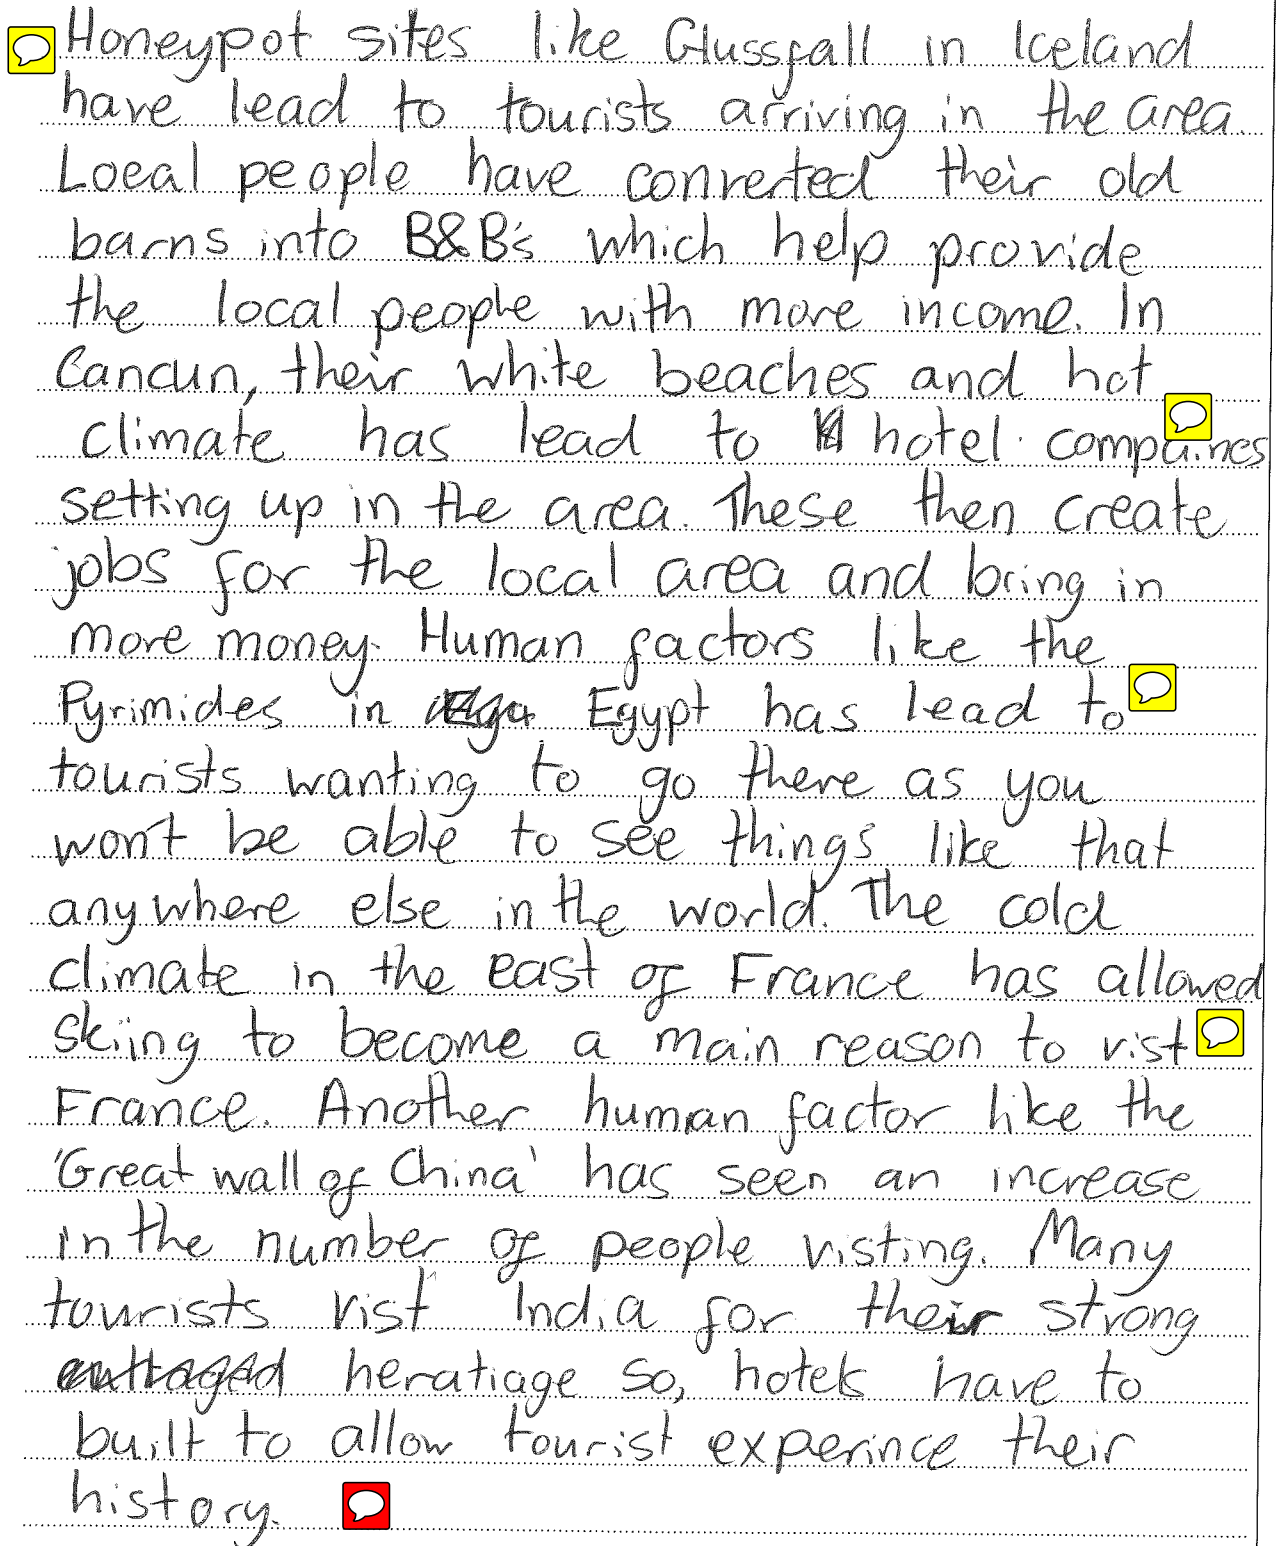 Honeypot sites like Glussfall in Iceland
have lead to tourists arriving in the area.
Local people have converted their old
barns into B&B's which help provide
the local people with more income. In
Cancun, their white beaches and hot
climate has lead to hotel compaines
setting up in the area. These then create
jobs for the local area and bring in
more money. Human factors like the
Pyrimides in Egypt has lead to
tourists wanting to go there as you
won't be able to see things like that
anywhere else in the world. The cold
climate in the east of France has allowed
skiing to become a main reason to vist
France. Another human factor like the
'Great wall of China' has seen an increase
in the number of people visting. Many
tourists vist India for their strong
heratiage so, hotels have to
built to allow tourist experince their
history.